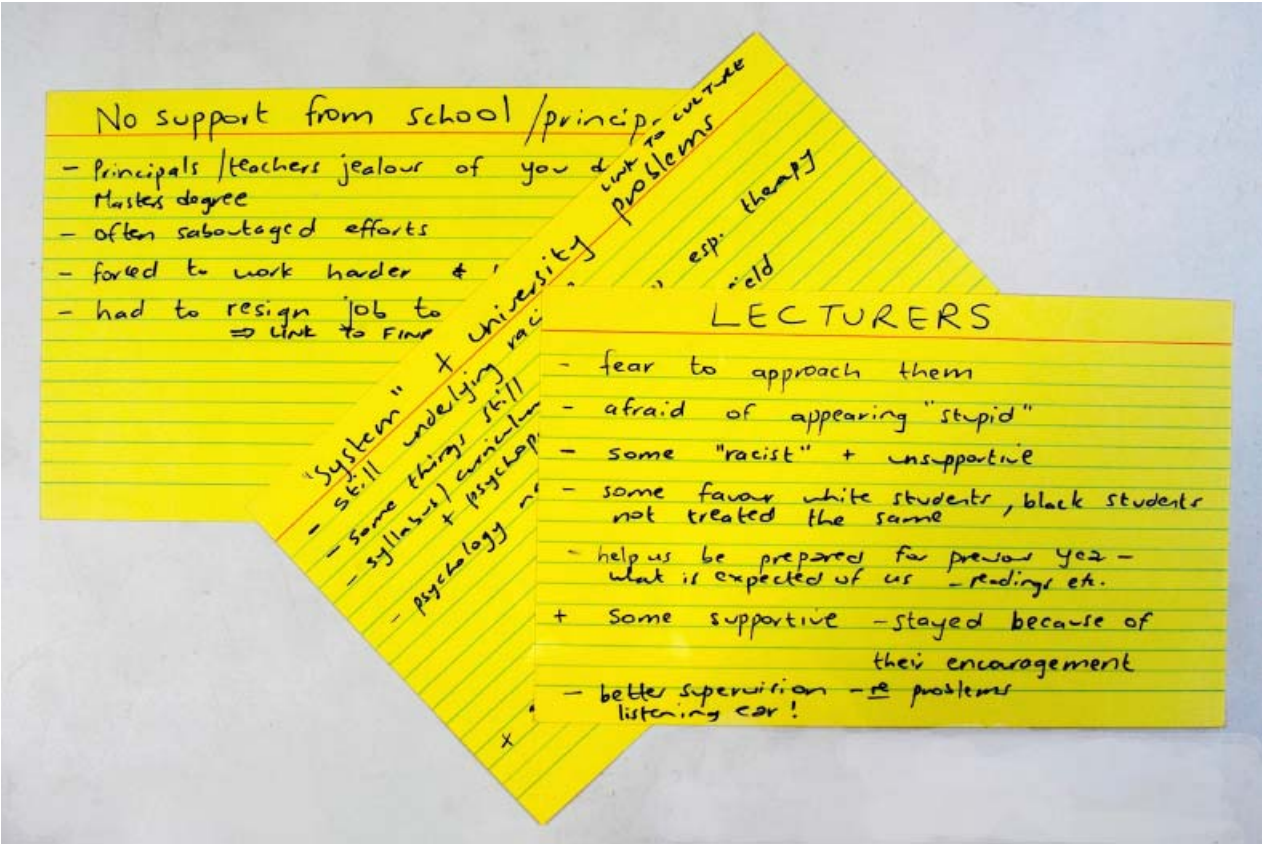 No support from school /princip
- Principals /teachers jealous of you d
Masters degree
- often saboutaged efforts
- forced to work harder &
- had to resign job to
⇒ LINK TO FIN
LINK TO CULTURE
"System" + University problems
- still underlying raci
- some things still
- syllabus/ curriculum
+ psychop
- psychology
esp. therapy
ield
+
LECTURERS
- fear to approach them
- afraid of appearing "stupid"
- some "racist" + unsupportive
- some favour white students, black students
not treated the same
- help us be prepared for previous year -
what is expected of us - readings etc.
+ Some supportive - stayed because of
their encouragement
- better supervision - re problems
listening ear!